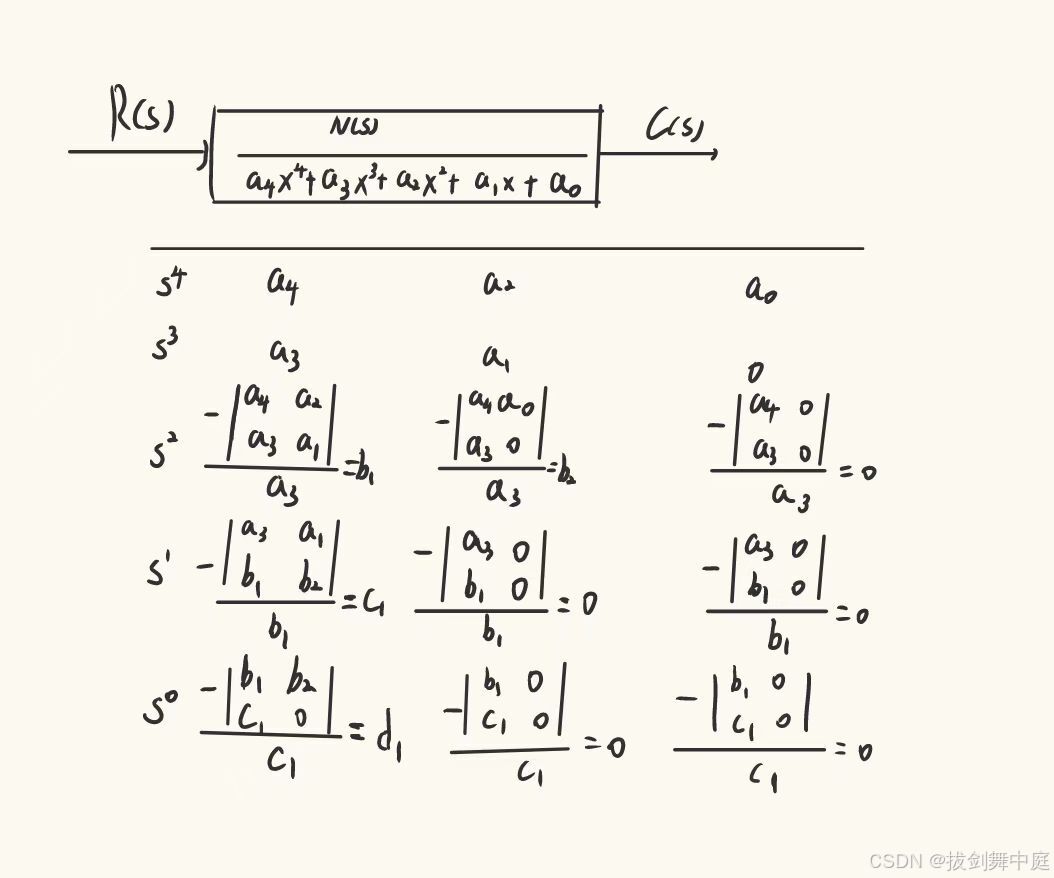 R(s) N(s) C(s)
a₄x⁴+a₃x³+a₂x²+ a₁x + a₀
s⁴ a₄ a₂ a₀
s³ a₃ a₁ 0
s² -|a₄ a₂; a₃ a₁|/a₃ =b₁ -|a₄ a₀; a₃ 0|/a₃ =b₂ -|a₄ 0; a₃ 0|/a₃ =0
s¹ -|a₃ a₁; b₁ b₂|/b₁ =c₁ -|a₃ 0; b₁ 0|/b₁ =0 -|a₃ 0; b₁ 0|/b₁ =0
s⁰ -|b₁ b₂; c₁ 0|/c₁ =d₁ -|b₁ 0; c₁ 0|/c₁ =0 -|b₁ 0; c₁ 0|/c₁ =0
CSDN @拔剑舞中庭